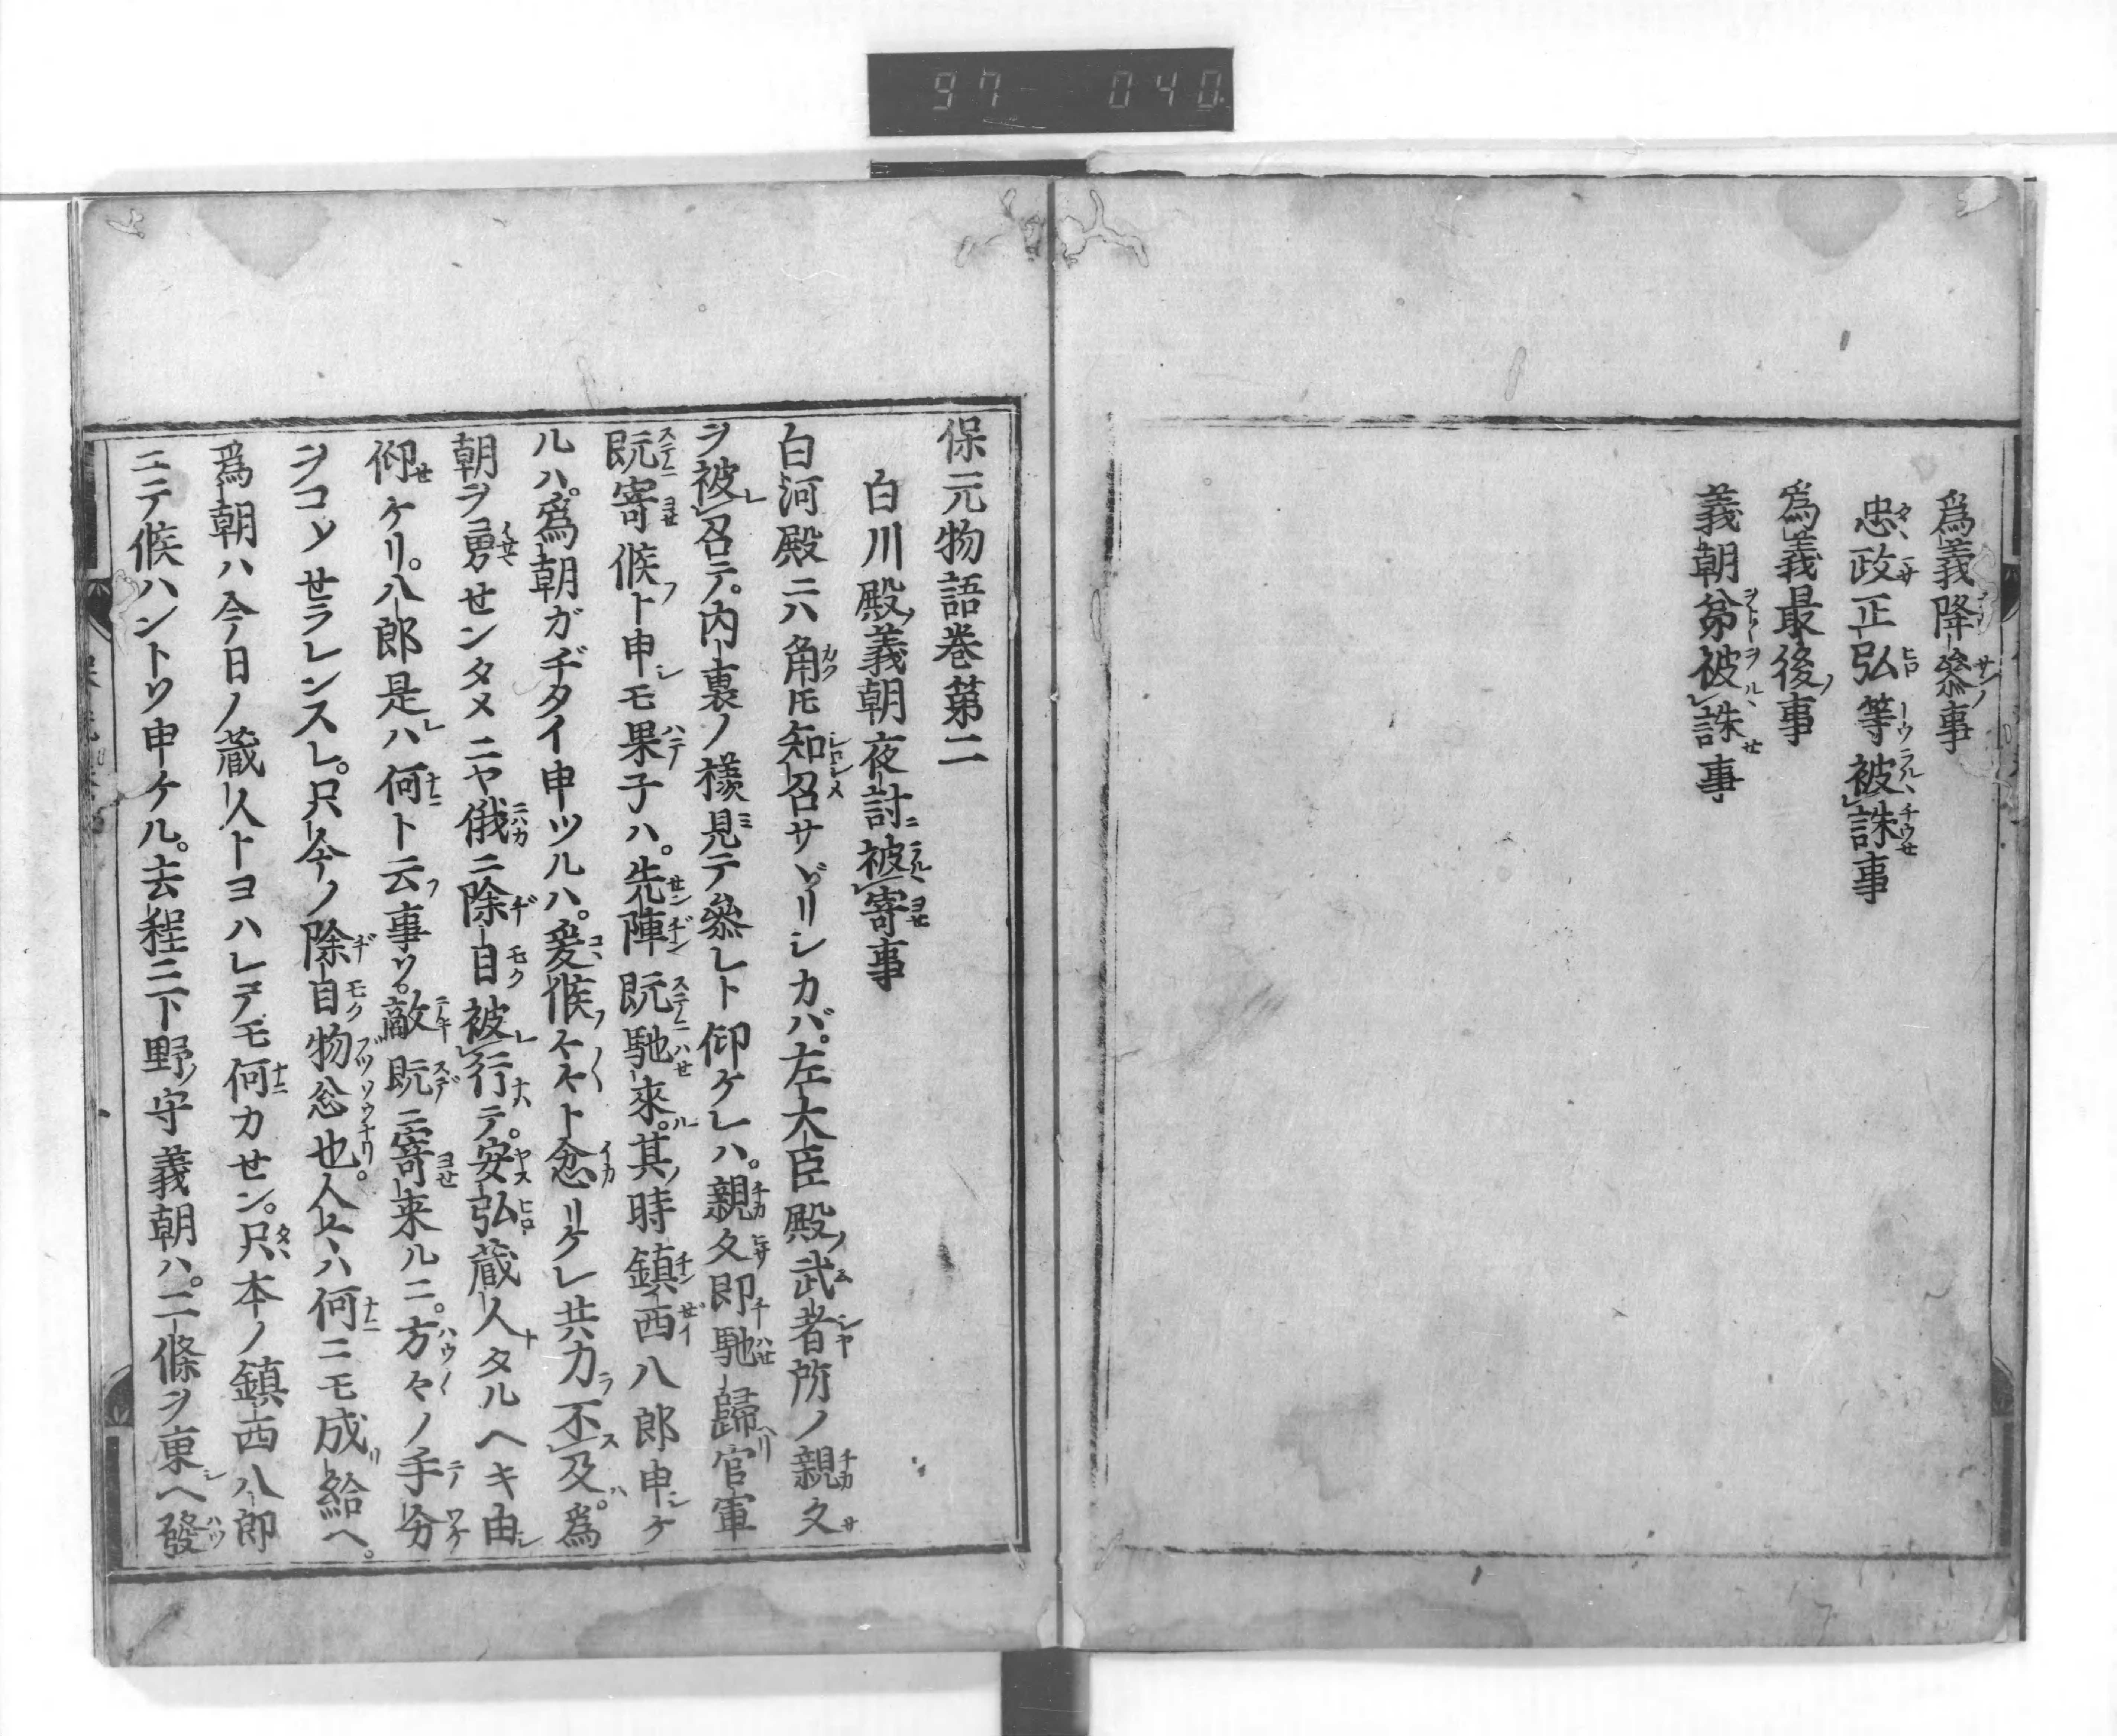 97 040
爲義降參事
忠政正弘等被誅事
爲義最後事
義朝弟被誅事
保元物語巻第二
白川殿義朝夜討被寄事
白河殿ニハ角トモ知召サヾリシカバ。左大臣殿武者所ノ親久
ヲ被召テ。内裏ノ樣見テ參レト仰ケレハ。親久即馳歸官軍
既寄候ト申モ果子ハ。先陣既馳來。其時鎮西八郎申ケ
ルハ。爲朝ガヂタイ申ツルハ。爰候々々ト忿リケレ共力不及。爲
朝ヲ勇センタメニヤ俄ニ除目被行テ。安弘藏人タルヘキ由
仰ケリ。八郎是ハ何ト云事ソ。敵既ニ寄来ルニ。方々ノ手分
ヲコソせラレンスレ。只今ノ除目物忩也人々ハ何ニモ成給ヘ。
爲朝ハ今日ノ藏人トヨハレテモ何カせン。只本ノ鎮西八郎
ニテ候ハントソ申ケル。去程ニ下野守義朝ハ。二條ヲ東ヘ發